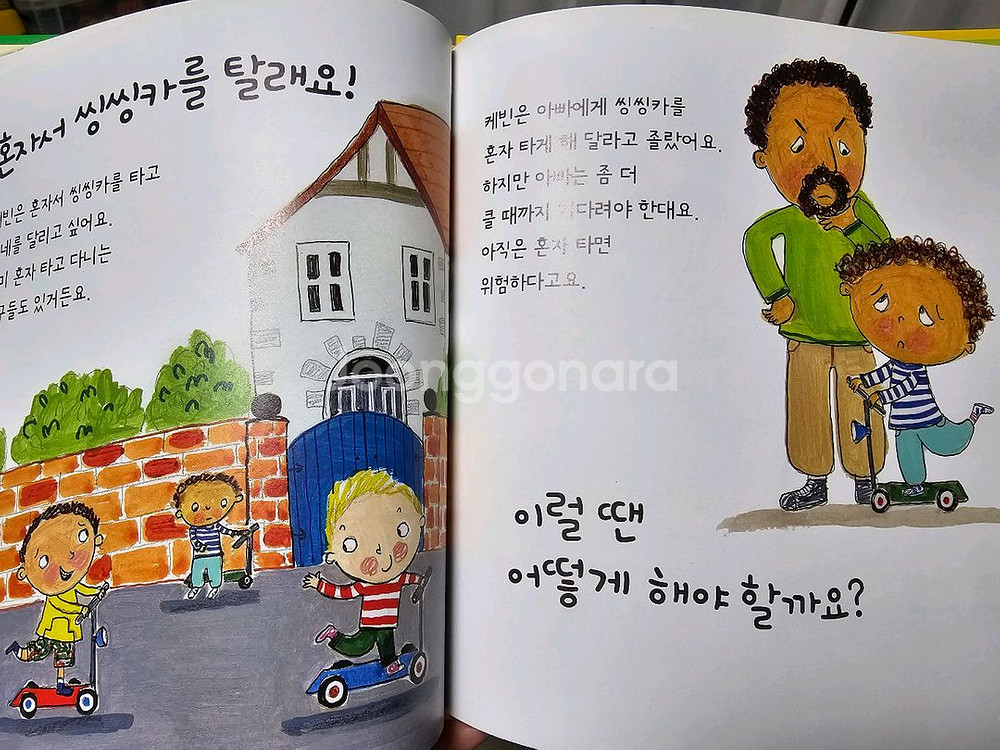 혼자서 씽씽카를 탈래요!
케빈은 혼자서 씽씽카를 타고
동네를 달리고 싶어요.
이미 혼자 타고 다니는
친구들도 있거든요.
케빈은 아빠에게 씽씽카를
혼자 타게 해 달라고 졸랐어요.
하지만 아빠는 좀 더
클 때까지 기다려야 한대요.
아직은 혼자 타면
위험하다고요.
이럴 땐
어떻게 해야 할까요?
joonggonara